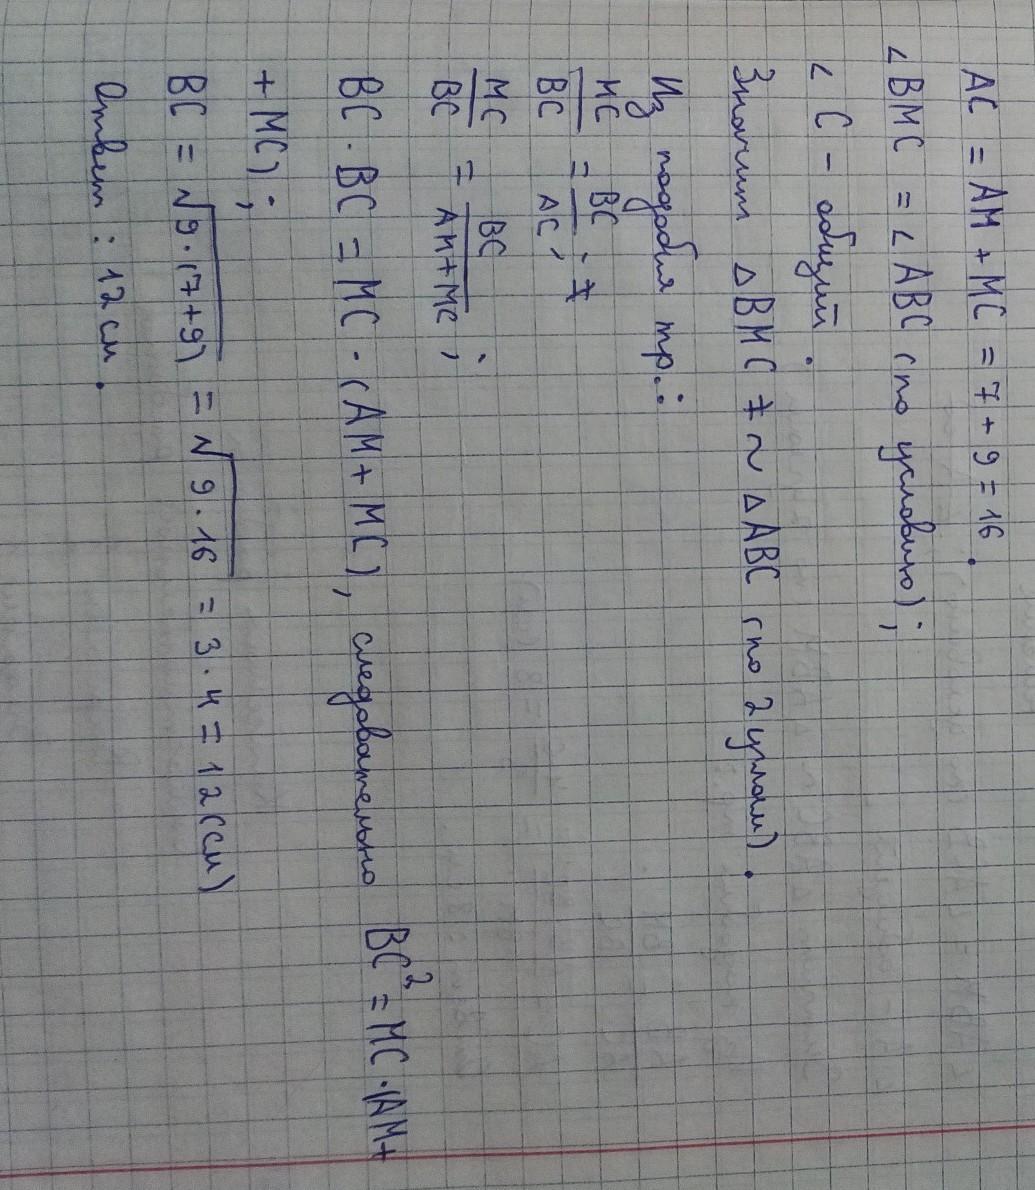 AC = AM + MC = 7 + 9 = 16.
∠BMC = ∠ABC (по условию);
∠ C - общий.
Значит △BMC ~ △ABC (по 2 углам).
Из подобия тр.:
MC/BC = BC/AC;
MC/BC = BC/AM+MC;
BC · BC = MC · (AM + MC), следовательно BC² = MC · (AM +
+ MC);
BC = √9·(7+9) = √9·16 = 3·4 = 12 (см)
Ответ: 12 см.